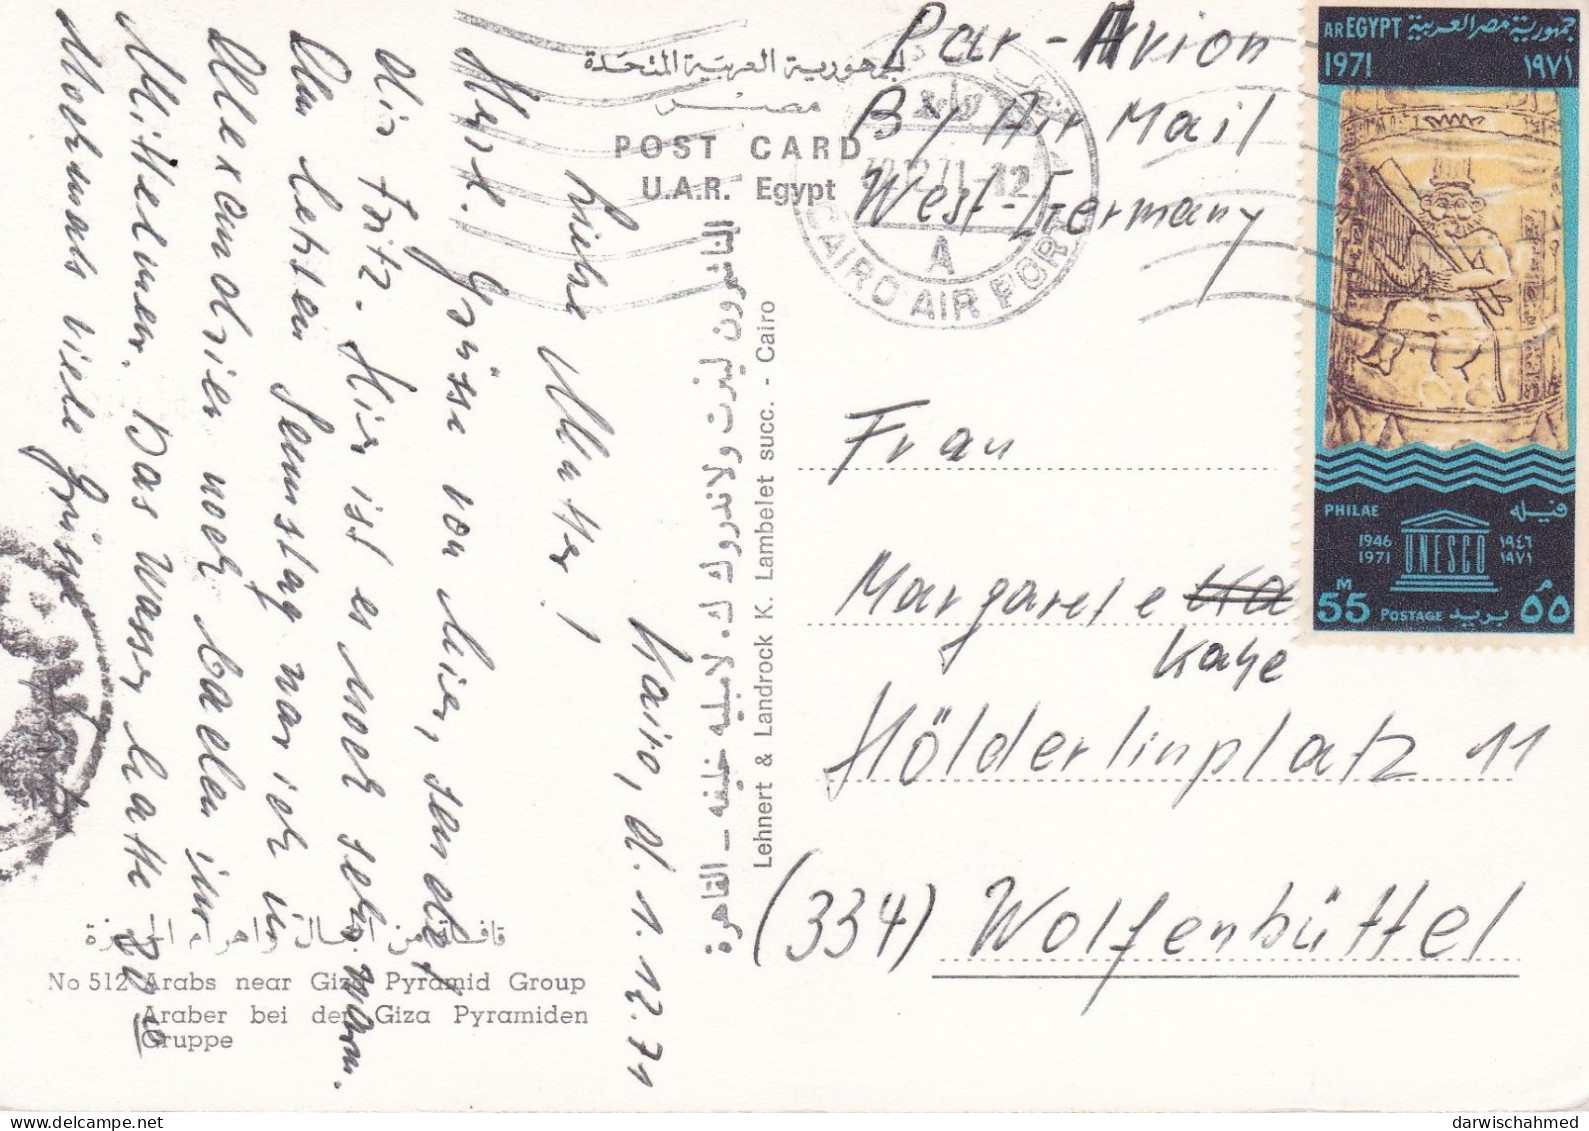 الجمهورية العربية المتحدة
مصر
POST CARD
U.A.R. Egypt
Par-Avion
By Air Mail
West-Germany
CAIRO AIR PORT
A
AREGYPT جمهورية مصر العربية
1971 ١٩٧١
PHILAE فيله
1946 ١٩٤٦
1971 ١٩٧١
UNESCO
M م
55 POSTAGE بريد ٥٥
Frau
Margarete Kaye
Hölderlinplatz 11
(334) Wolfenbüttel
Kairo, d. 1.12.71
Liebe Mutter!
Herzl. Grüsse von hier, sendet
dir Fritz. Hier ist es noch sehr warm.
Am letzten Sonnstag war ich in
Alexandrien noch baden im
Mittelmeer. Das Wasser hatte 20
Nochmals viele Grüsse
الناشرون لينرت ولاندروك ك. لامبليه خليفه - القاهرة
Lehnert & Landrock K. Lambelet succ. - Cairo
قافلة من الجمال وأهرام الجيزة
No 512 Arabs near Giza Pyramid Group
Araber bei der Giza Pyramiden
Gruppe
delcampe.net
darwischahmed